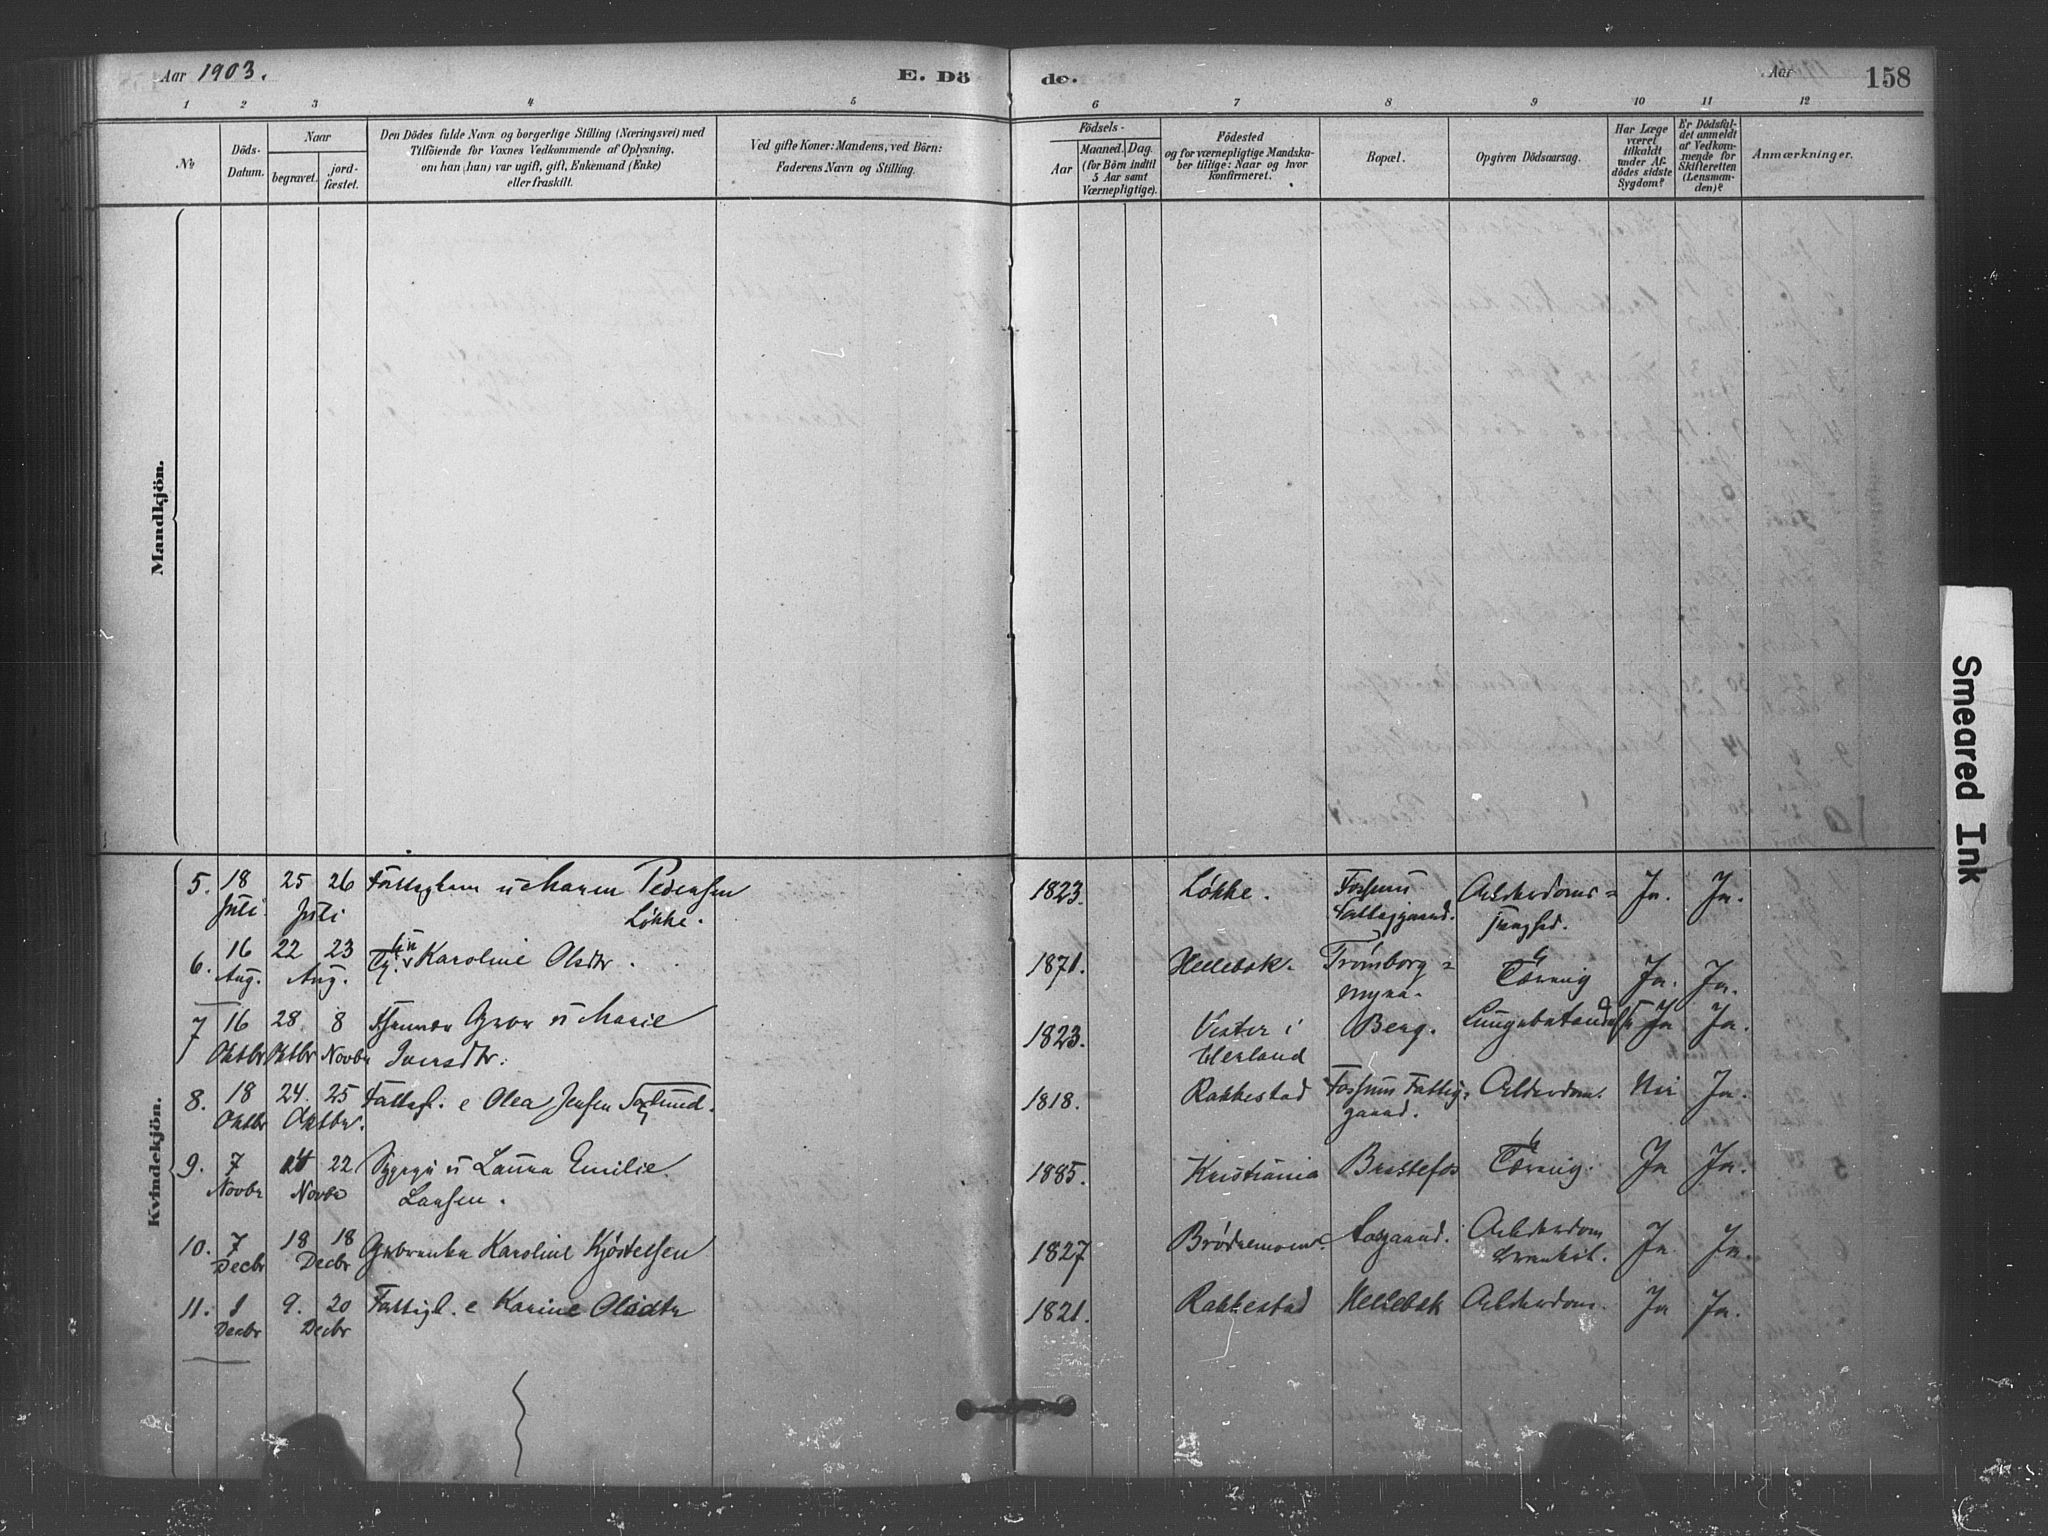 Aar 1903.
E. Dö
de.
Aar
158
1 2 3 4 5 6 7 8 9 10 11 12
No
Döds-
Datum.
Naar
begravet.
jord-
fæstet.
Den Dödes fulde Navn og borgerlige Stilling (Næringsvei) med
Tilföiende for Voxnes Vedkommende af Oplysning,
om han (hun) var ugift, gift, Enkemand (Enke)
eller fraskilt.
Ved gifte Koner: Mandens, ved Börn:
Faderens Navn og Stilling.
Födsels-
Aar
Maaned. Dag.
(for Börn indtil
5 Aar samt
Værnepligtige).
Födested
og for værnepligtige Mandska-
ber tillige: Naar og hvor
konfirmeret.
Bopæl.
Opgiven Dödsaarsag.
Har Læge
været
tilkaldt
under Af-
dödes sidste
Sygdom?
Er Dödsfal-
det anmeldt
af Vedkom-
mende for
Skifteretten
(Lensman-
den)?
Anmærkninger.
Mandkjön.
Kvindekjön.
5. 18 25 26 Maren Pedersen 1823. Løkke. Fossum Ja. Ja.
Juli. Juli Løkke. Fattiggaard.
6. 16 22 23 Karoline Olsdtr. 1871. Hellebæk. Trømborg= Tæring Ja. Ja.
Aug. Aug. myra.
7 16 28. 8 Marie 1823. Vister i Berg. Ja Ja.
Oktbr Oktbr Novbr Iversdtr.
8. 18 24. 25 Fattigl. e Olea Jensen 1818. Rakkestad Fossum Fattig- Alderdom. Nei Ja.
Oktbr Oktbr. gaard.
9. 7 22 Laura Emilie 1885. Kristiania Brattefos Tæring. Ja Ja.
Novbr Novbr Larsen.
10. 7 18 18 Karoline Kjøstelsen 1827 Aasgaard. Alderdom Ja Ja.
Decbr Decbr
11. 1 9. 20 Fattigl. e Karine Olsdtr 1821. Rakkestad Hellebæk Alderdom. Ja Ja.
Decbr Decbr
Smeared Ink